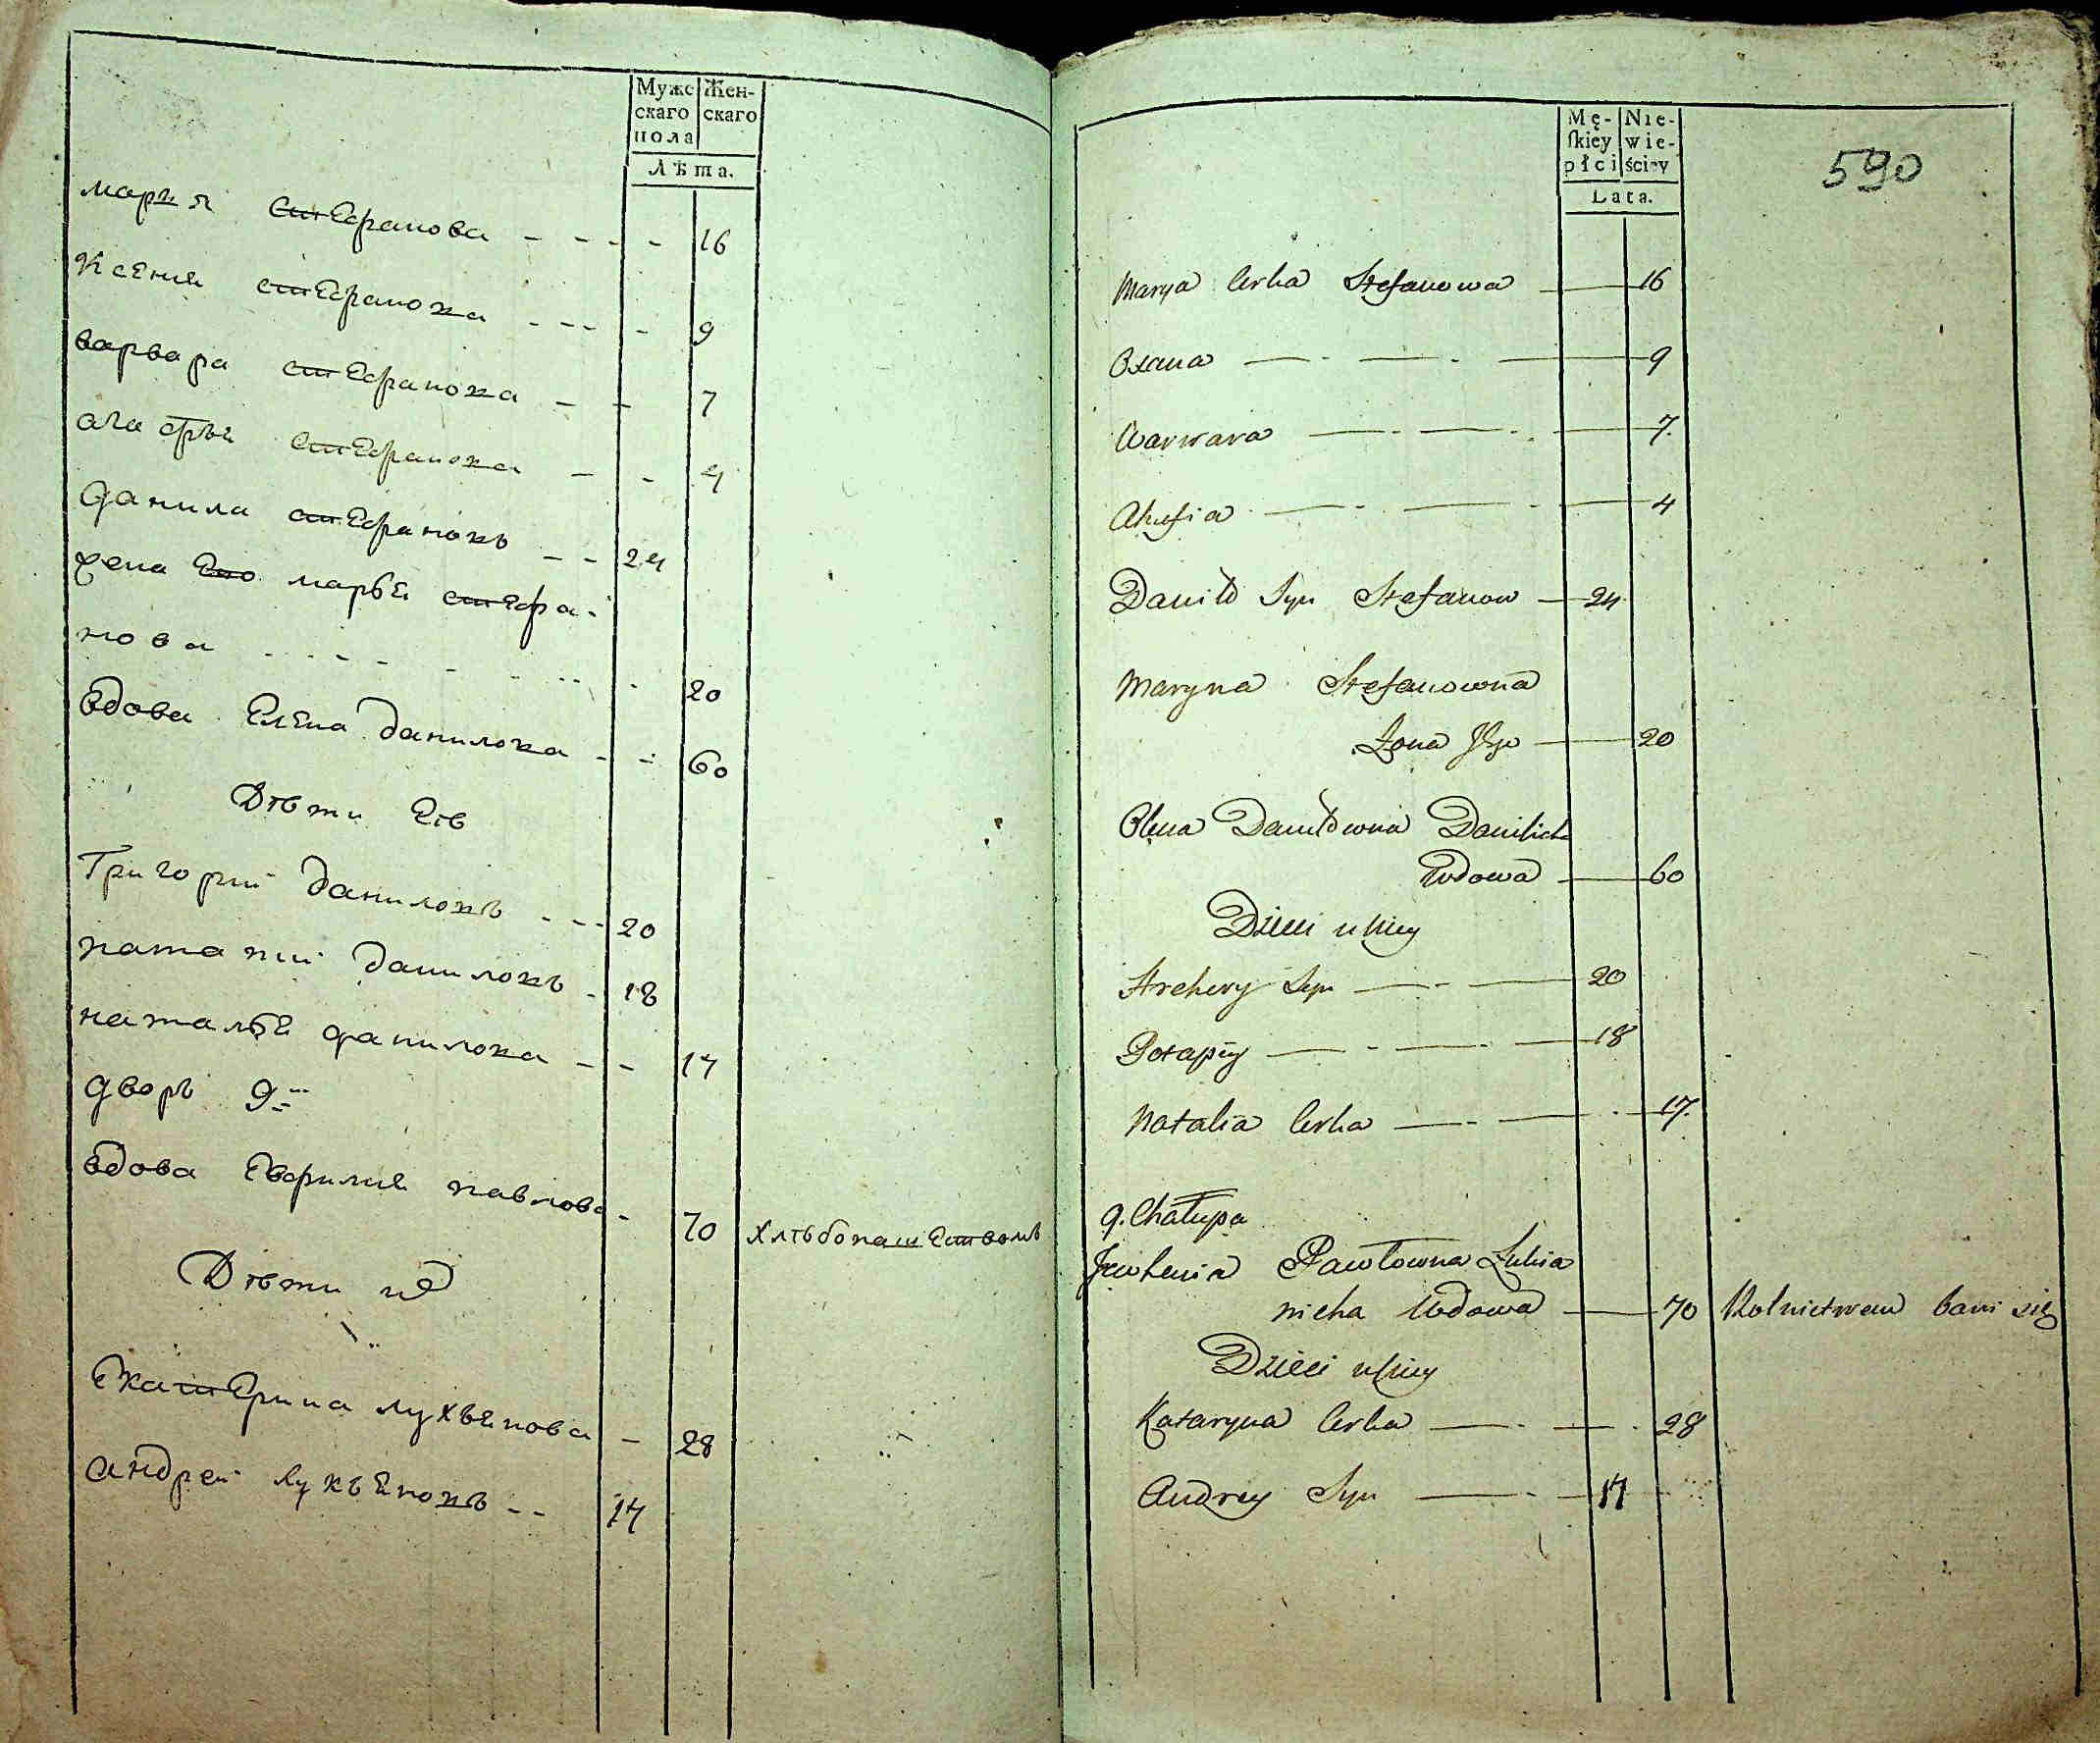 Мужс Жен-
скаго скаго
пола
Лѣта.
мария стефанова - - - - 16
Ксения стефанова - - - - 9
варвара стефанова - - 7
агафья стефанова - - 4
данила стефановъ - - 24
жена его марья стефа-
нова - - - - - - 20
вдова Елена данилова - - 60
Дѣти Еѣ
Григорий даниловъ - - - 20
потапий даниловъ - 18
наталья данилова - - 17
дворъ 9й
вдова Евгения павлова - 70 хлѣбопашествомъ
Дѣти ея
Екатерина лукьянова - 28
андрей лукьяновъ - - 17
Mę- Nie-
ſkiey wie-
płci ściey
Lata.
590
Marya Corka Stefanowa — 16
Oxana — - — - — 9
Warwara — - — - — 7.
Ahafia — - — - — 4
Daniło Syn Stefanow — 24
Maryna Stefanowna
Zona Jego — 20
Olena Daniłowna Danilicha
Wdowa — 60
Dzieci u Niey
Hrehory Syn — - — 20
Potapiy — - — - — 18
Natalia Corka — - — - — 17.
9. Chałupa
Jewhenia Pawłowna Łukia
nicha Wdowa — 70 Rolnictwem bawi się
Dzieci u Niey
Kataryna Corka — - — - 28
Andrey Syn — - — 17